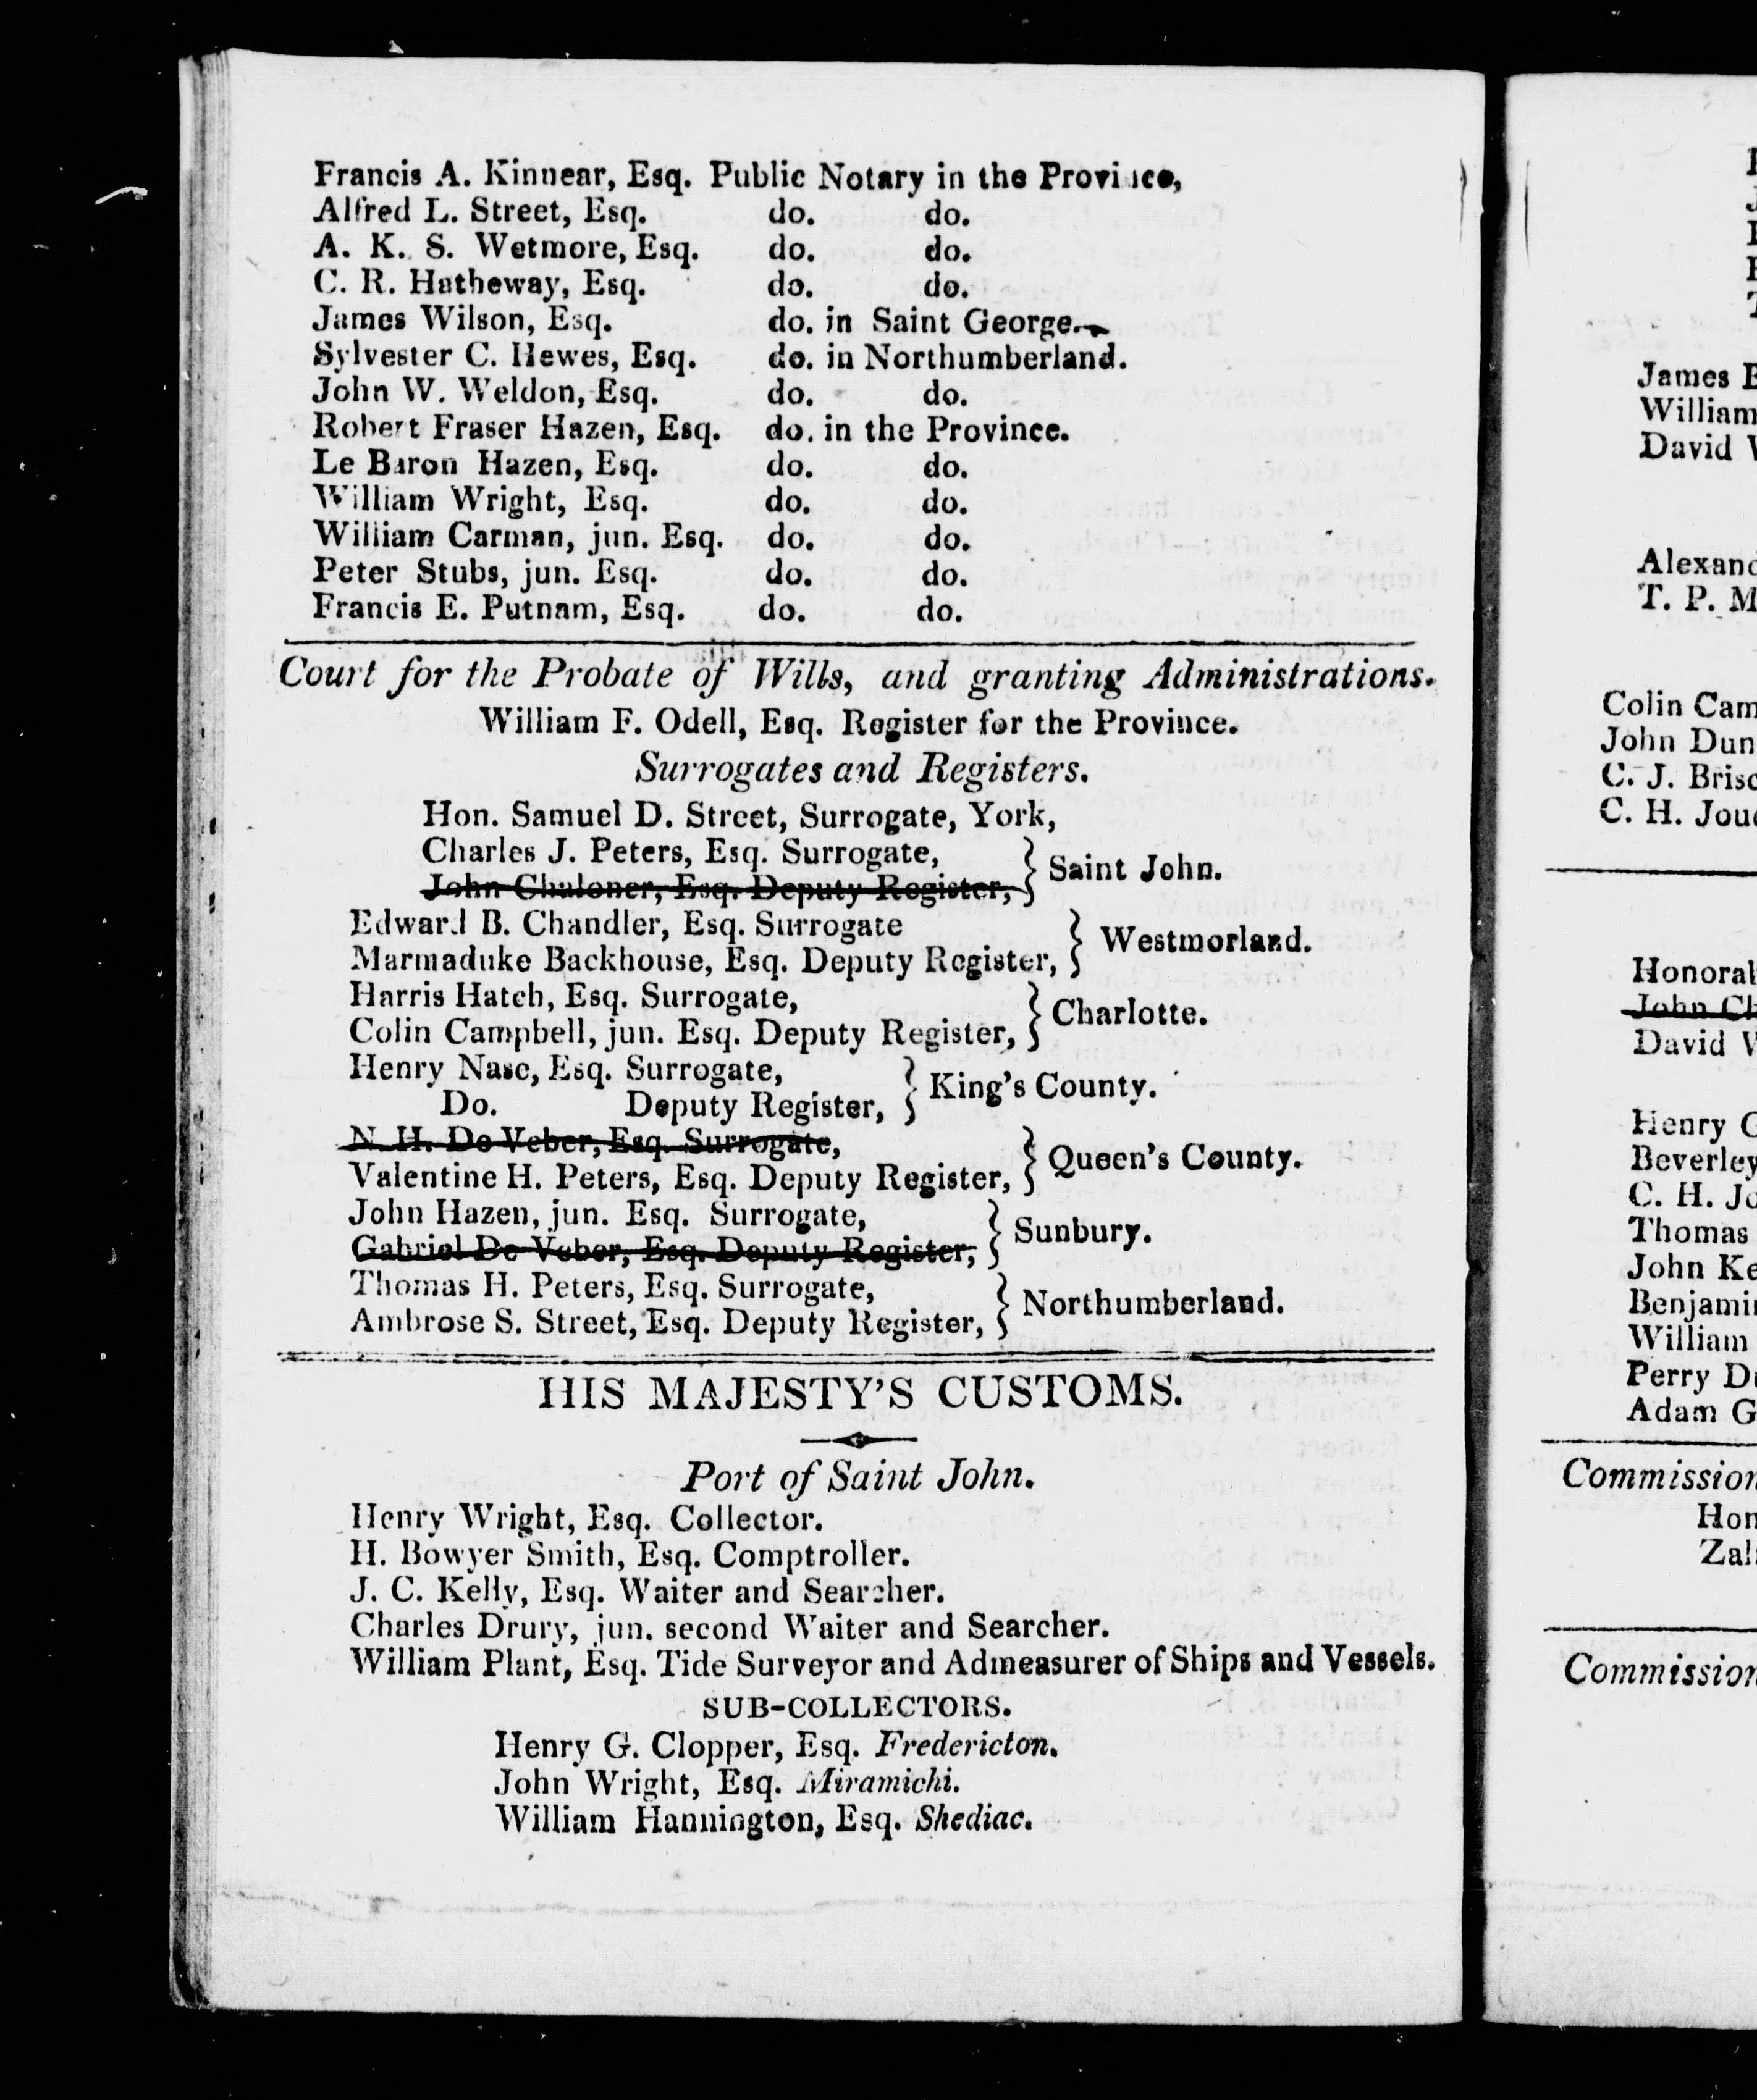 Francis A. Kinnear, Esq. Public Notary in the Province,
Alfred L. Street, Esq. do. do.
A. K. S. Wetmore, Esq. do. do.
C. R. Hatheway, Esq. do. do.
James Wilson, Esq. do. in Saint George.
Sylvester C. Hewes, Esq. do. in Northumberland.
John W. Weldon, Esq. do. do.
Robert Fraser Hazen, Esq. do. in the Province.
Le Baron Hazen, Esq. do. do.
William Wright, Esq. do. do.
William Carman, jun. Esq. do. do.
Peter Stubs, jun. Esq. do. do.
Francis E. Putnam, Esq. do. do.
Court for the Probate of Wills, and granting Administrations.
William F. Odell, Esq. Register for the Province.
Surrogates and Registers.
Hon. Samuel D. Street, Surrogate, York,
Charles J. Peters, Esq. Surrogate,
John Chaloner, Esq. Deputy Register, } Saint John.
Edward B. Chandler, Esq. Surrogate
Marmaduke Backhouse, Esq. Deputy Register, } Westmorland.
Harris Hatch, Esq. Surrogate,
Colin Campbell, jun. Esq. Deputy Register, } Charlotte.
Henry Nase, Esq. Surrogate,
Do. Deputy Register, } King's County.
N. H. De Veber, Esq. Surrogate,
Valentine H. Peters, Esq. Deputy Register, } Queen's County.
John Hazen, jun. Esq. Surrogate,
Gabriel De Veber, Esq. Deputy Register, } Sunbury.
Thomas H. Peters, Esq. Surrogate,
Ambrose S. Street, Esq. Deputy Register, } Northumberland.
HIS MAJESTY'S CUSTOMS.
Port of Saint John.
Henry Wright, Esq. Collector.
H. Bowyer Smith, Esq. Comptroller.
J. C. Kelly, Esq. Waiter and Searcher.
Charles Drury, jun. second Waiter and Searcher.
William Plant, Esq. Tide Surveyor and Admeasurer of Ships and Vessels.
SUB-COLLECTORS.
Henry G. Clopper, Esq. Fredericton.
John Wright, Esq. Miramichi.
William Hannington, Esq. Shediac.
James
William
David
T. P.
Colin
John
C. J.
C. H.
John
David
Henry
Beverley
C. H.
Thomas
John
William
Perry
Adam